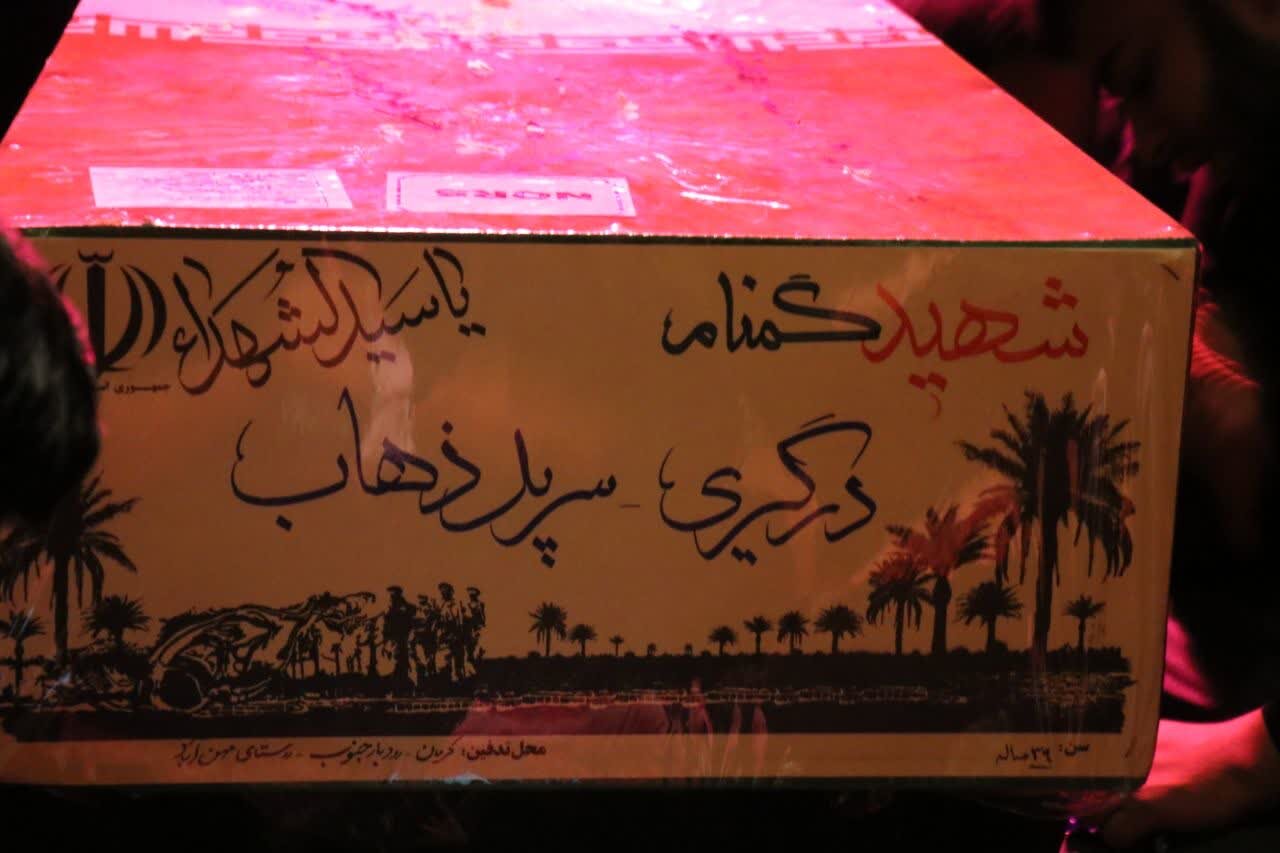 NORS
شهید گمنام
یا سیدالشهداء
جمهوری
درگیری - سرپل ذهاب
سن: ۳۶ ساله
محل تدفین: کرمان - رودبار جنوب - روستای میهن آباد